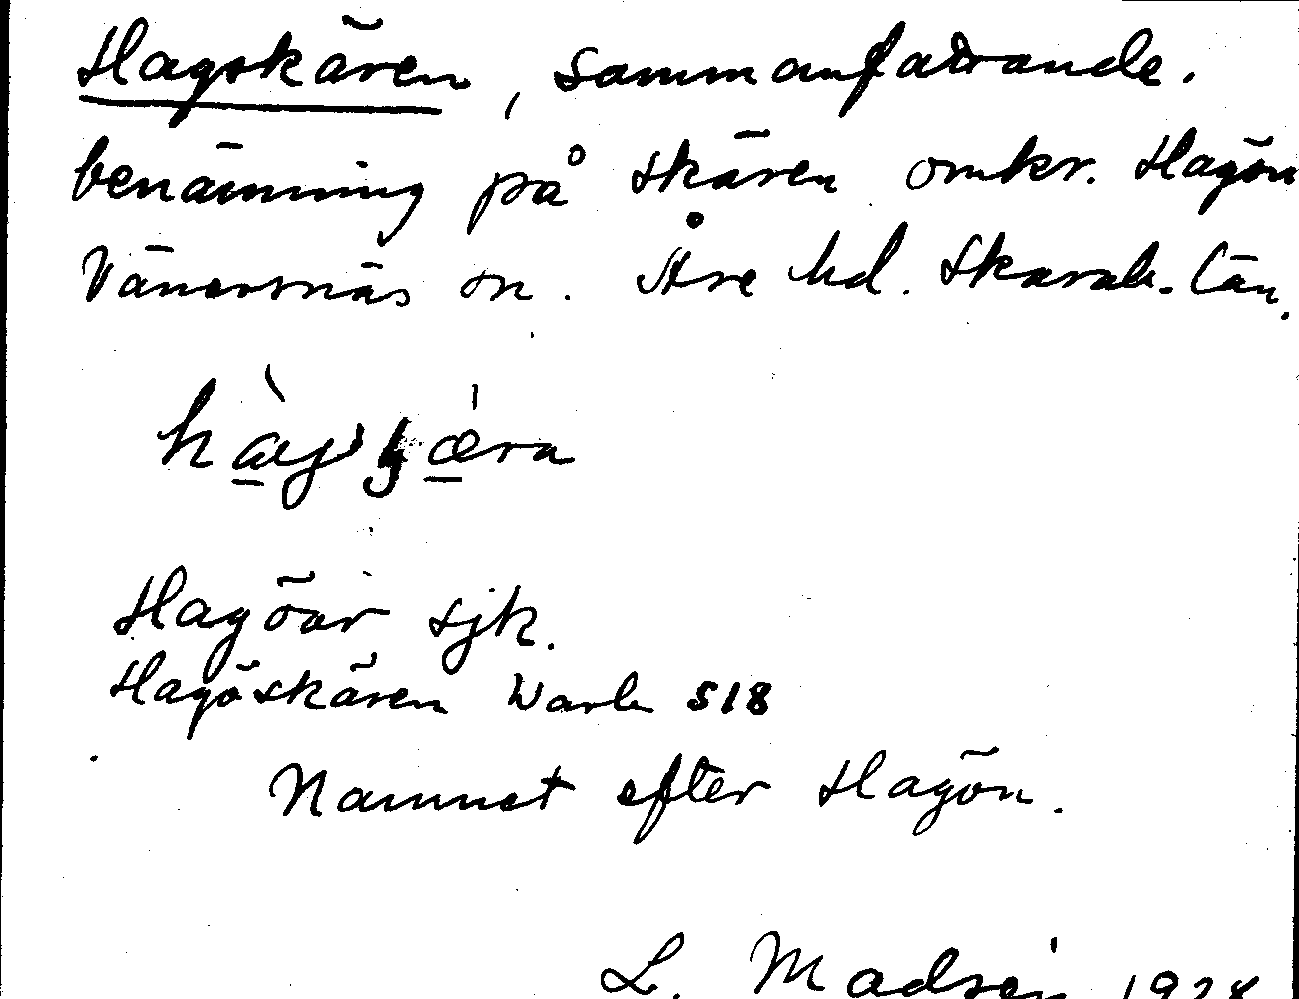 Hagskären, sammanfattande.
benämning på skären omkr. Hagön
Vänersnäs sn. Åre hd. Skarab. län.
Hagöar sjk.
Hagöskären Warb 518
Namnet efter Hagön.
L. Madsén